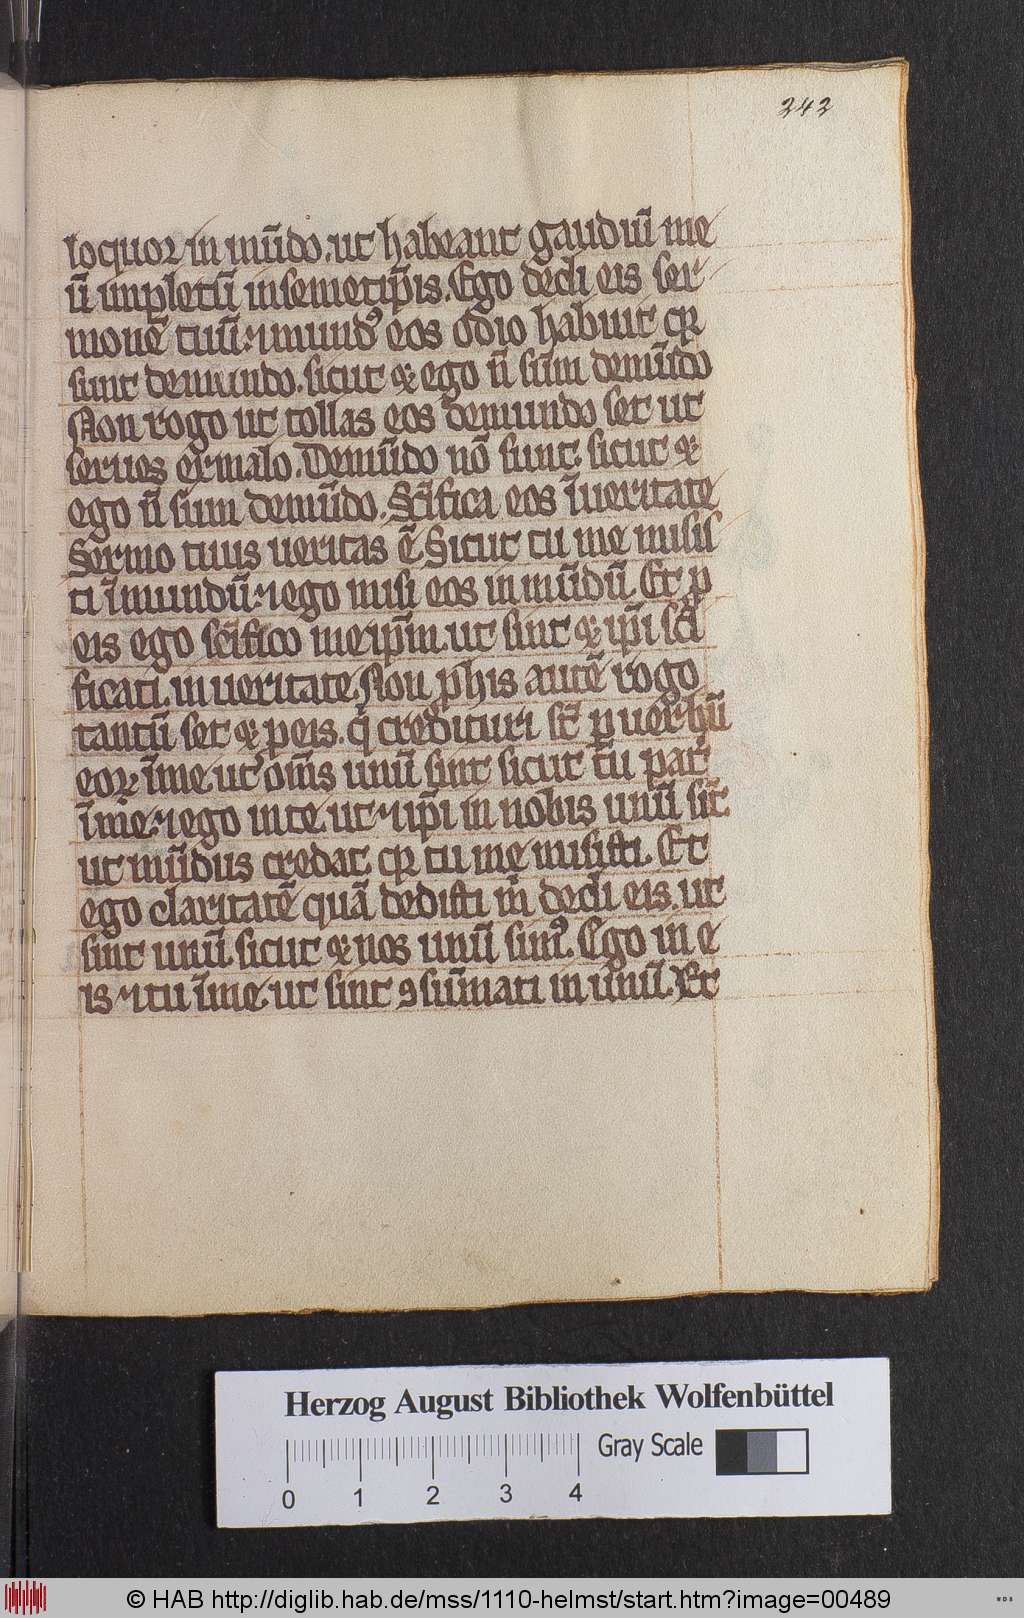 242
loquor in mūdo. ut habeant gaudiū me
ū impletū insemetip̄is. Ego dedi eis ser
monē tuū. ⁊ mundꝰ eos odio habuit qꝛ
sunt demundo. sicut et ego n̄ sum demūdo
Non rogo ut tollas eos demundo set ut
serues exmalo. Demūdo nō sunt. sicut et
ego n̄ sum demūdo. Sc̄ifica eos īueritate
Sermo tuus ueritas ē. Sicut tu me misis
ti īmundū. ⁊ ego misi eos in mūdū. Et ꝑ
eis ego sc̄ifico meip̄m. ut sint et ip̄i sc̄i
ficati. in ueritate. Non ꝓ his autē rogo
tantū set et ꝓ eis. q̄ credituri st̄ ꝑ uerbū
eoꝝ īme. ut om̄s unū sint sicut tu pat̄
īme. ⁊ ego inte. ut ⁊ ip̄i in nobis unū sīt.
ut mūdus credat. qꝛ tu me misisti. Et
ego claritatē quā dedisti m̄ dedi eis. ut
sint unū. sicut et nos unū sumꝰ. Ego in e
is ⁊ tu īme. ut sint ꝯsūmati in unū. Et
Herzog August Bibliothek Wolfenbüttel
Gray Scale
0 1 2 3 4
© HAB http://diglib.hab.de/mss/1110-helmst/start.htm?image=00489